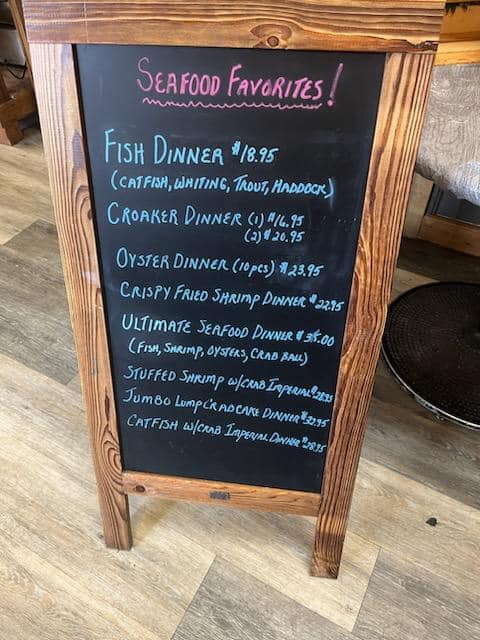 SEAFOOD FAVORITES!
FISH DINNER $18.95
(CATFISH, WHITING, TROUT, HADDOCK)
CROAKER DINNER (1) $16.95
(2) $20.95
OYSTER DINNER (10 PCS) $23.95
CRISPY FRIED SHRIMP DINNER $22.95
ULTIMATE SEAFOOD DINNER $35.00
(FISH, SHRIMP, OYSTERS, CRAB BALL)
STUFFED SHRIMP W/CRAB IMPERIAL $28.95
JUMBO LUMP CRABCAKE DINNER $32.95
CATFISH W/CRAB IMPERIAL DINNER $28.95